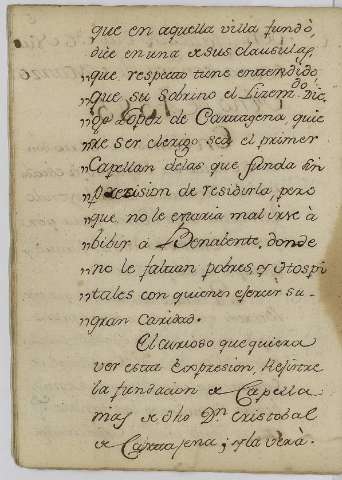 que en aquella villa fundò,
dice en una de sus clausulas,
"que respecto tiene entendido,
"que su sobrino el Lizendo. Die-
"go Lopez de Carttagena, quie
"re ser clerigo, sea el primer
"Capellan de las que funda sin
"precision de residirla, pero
"que no le estaria mal irse à
"bibir à Benabente, donde
"no le faltan pobres, y Ospi
"tales con quienes exercer su-
"gran Caridad.
El curioso que quiera
ver esta Expresion, Rexistre
la fundacion de Capella
nias de dho Dn. Cristobal
de Cartagena; y la verà.